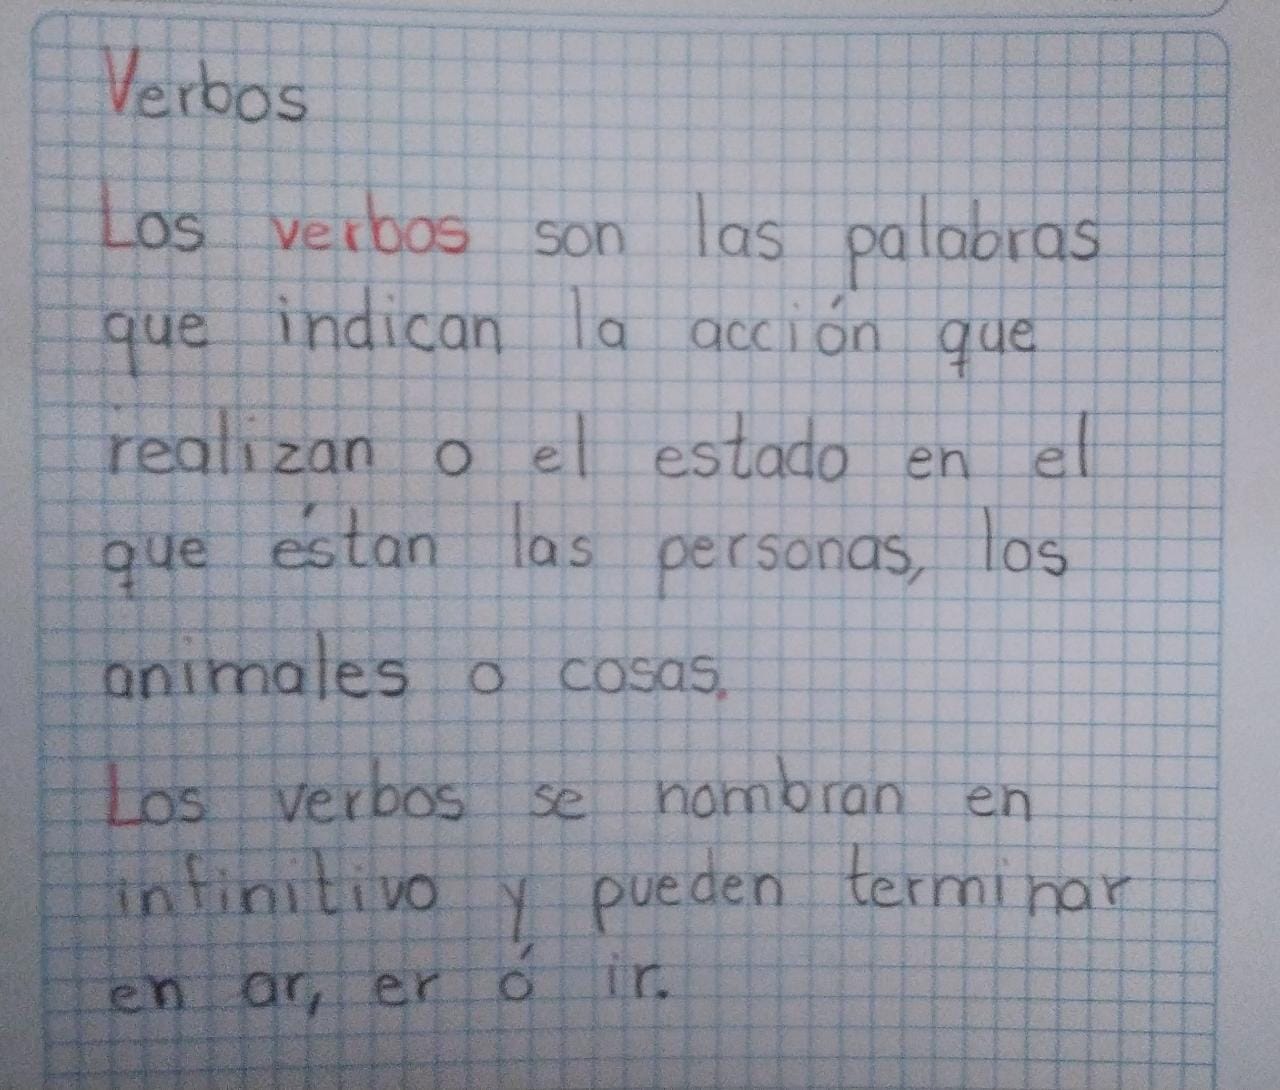 Verbos
Los verbos son las palabras
que indican la acción que
realizan o el estado en el
que éstan las personas, los
animales o cosas.
Los verbos se nombran en
infinitivo y pueden terminar
en ar, er ó ir.